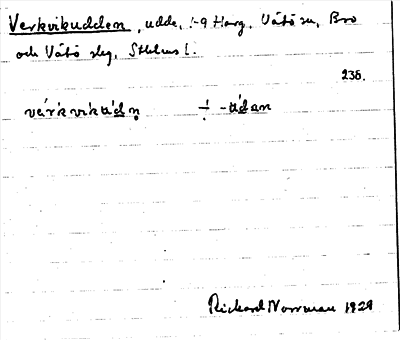 Verkvikudden, udde, 1-9 Harg, Vätö sn, Bro
och Vätö slg, Sthlms l.
236.
värkvikudn ÷ -udan
Rickard Norrman 1929